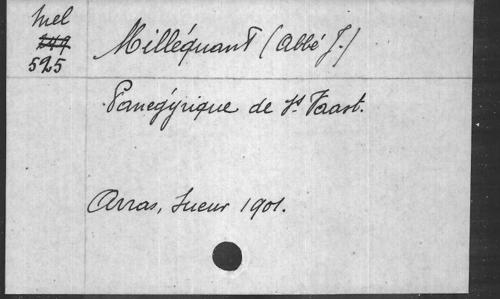 Mel
249
525
Milléquant (Abbé J.)
Panegyrique de St Vaast.
Arras, Sueur 1901.